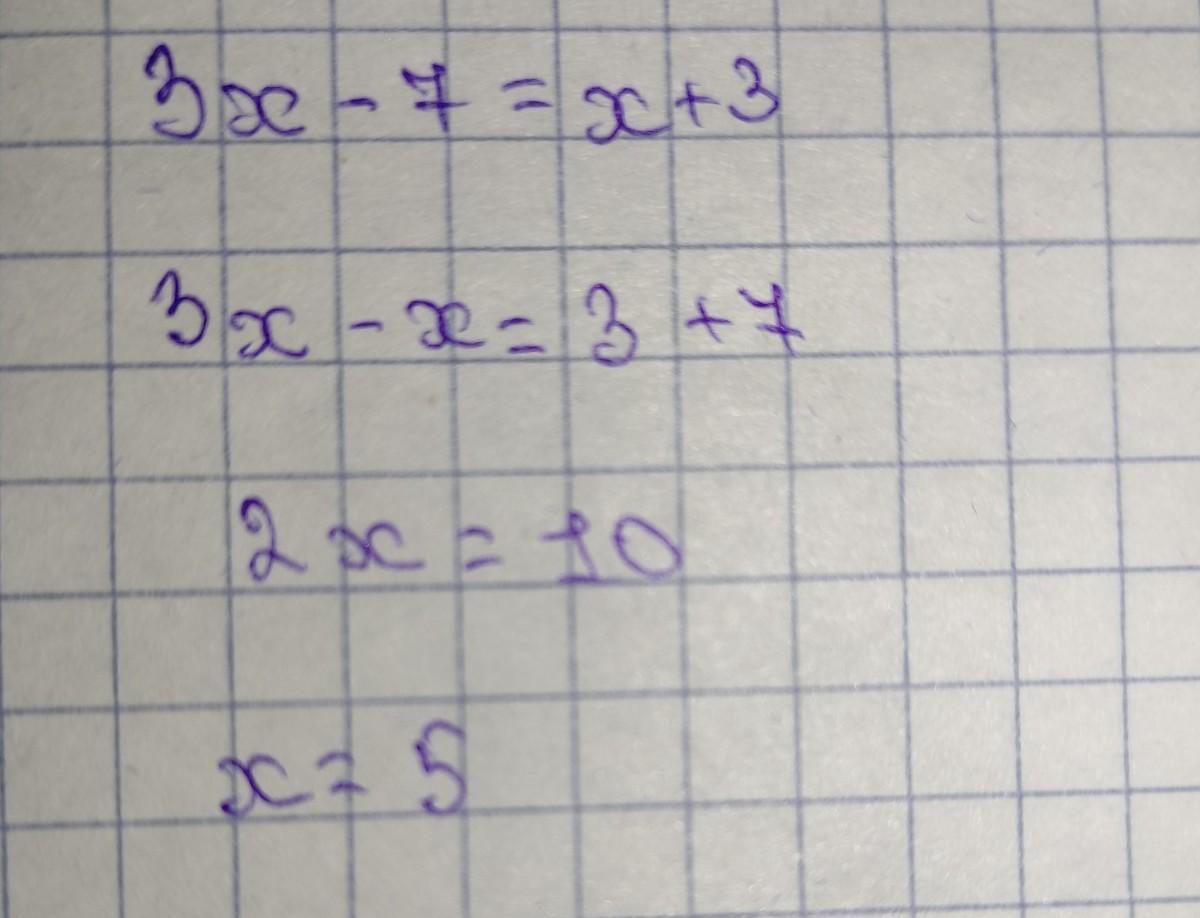 3x - 7 = x + 3
3x - x = 3 + 7
2x = 10
x = 5